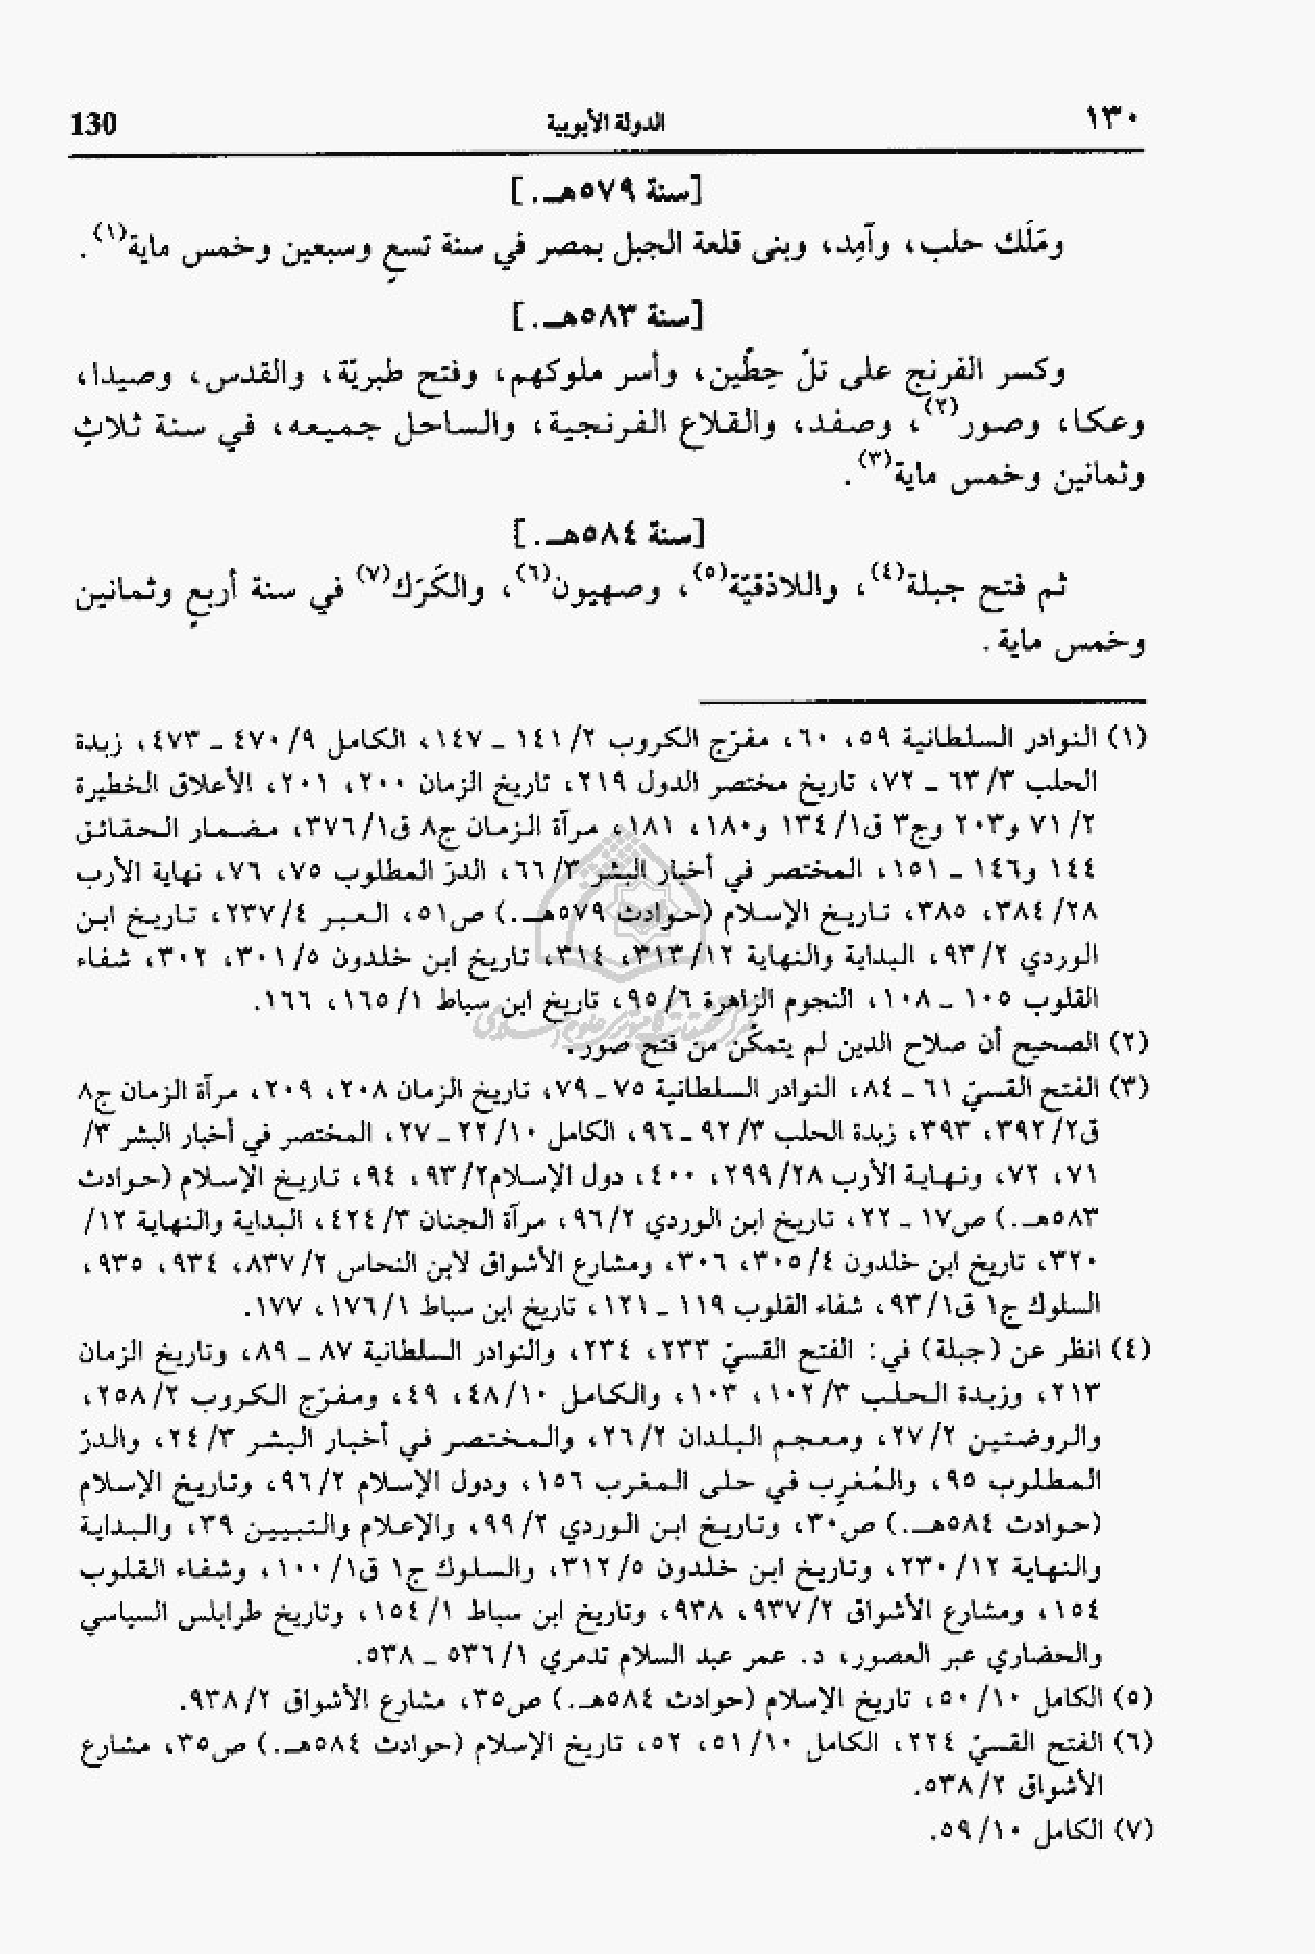 ١٣٠ الدولة الأيوبية 130
[سنة ٥٧٩هـ.]
ومَلَك حلب، وآمِد، وبنى قلعة الجبل بمصر في سنة تسعٍ وسبعين وخمس ماية(١).
[سنة ٥٨٣هـ.]
وكسر الفرنج على تلّ حِطِّين، وأسر ملوكهم، وفتح طبريّة، والقدس، وصيدا،
وعكا، وصور(٢)، وصفد، والقلاع الفرنجية، والساحل جميعه، في سنة ثلاثٍ
وثمانين وخمس ماية(٣).
[سنة ٥٨٤هـ.]
ثم فتح جبلة(٤)، واللاذقيّة(٥)، وصهيون(٦)، والكَرَك(٧) في سنة أربعٍ وثمانين
وخمس ماية.
(١) النوادر السلطانية ٥٩، ٦٠، مفرّج الكروب ٢/ ١٤١ ـ ١٤٧، الكامل ٩/ ٤٧٠ ـ ٤٧٣، زبدة
الحلب ٣/ ٦٣ ـ ٧٢، تاريخ مختصر الدول ٢١٩، تاريخ الزمان ٢٠٠، ٢٠١، الأعلاق الخطيرة
٢/ ٧١ و٢٠٣ وج٣ ق١/ ١٣٤ و١٨٠، ١٨١، مرآة الزمان ج٨ ق١/ ٣٧٦، مضمار الحقائق
١٤٤ و١٤٦ ـ ١٥١، المختصر في أخبار البشر ٣/ ٦٦، الدرّ المطلوب ٧٥، ٧٦، نهاية الأرب
٢٨/ ٣٨٤، ٣٨٥، تاريخ الإسلام (حوادث ٥٧٩هـ.) ص٥١، العبر ٤/ ٢٣٧، تاريخ ابن
الوردي ٢/ ٩٣، البداية والنهاية ١٢/ ٣١٣، ٣١٤، تاريخ ابن خلدون ٥/ ٣٠١، ٣٠٢، شفاء
القلوب ١٠٥ ـ ١٠٨، النجوم الزاهرة ٦/ ٩٥، تاريخ ابن سباط ١/ ١٦٥، ١٦٦.
(٢) الصحيح أن صلاح الدين لم يتمكّن من فتح صور.
(٣) الفتح القسيّ ٦١ ـ ٨٤، النوادر السلطانية ٧٥ ـ ٧٩، تاريخ الزمان ٢٠٨، ٢٠٩، مرآة الزمان ج٨
ق٢/ ٣٩٢، ٣٩٣، زبدة الحلب ٣/ ٩٢ ـ ٩٦، الكامل ١٠/ ٢٢ ـ ٢٧، المختصر في أخبار البشر ٣/
٧١، ٧٢، ونهاية الأرب ٢٨/ ٢٩٩، ٤٠٠، دول الإسلام٢/ ٩٣، ٩٤، تاريخ الإسلام (حوادث
٥٨٣هـ.) ص١٧ ـ ٢٢، تاريخ ابن الوردي ٢/ ٩٦، مرآة الجنان ٣/ ٤٢٤، البداية والنهاية ١٢/
٣٢٠، تاريخ ابن خلدون ٤/ ٣٠٥، ٣٠٦، ومشارع الأشواق لابن النحاس ٢/ ٨٣٧، ٩٣٤، ٩٣٥،
السلوك ج١ ق١/ ٩٣، شفاء القلوب ١١٩ ـ ١٢١، تاريخ ابن سباط ١/ ١٧٦، ١٧٧.
(٤) انظر عن (جبلة) في: الفتح القسيّ ٢٣٣، ٢٣٤، والنوادر السلطانية ٨٧ ـ ٨٩، وتاريخ الزمان
٢١٣، وزبدة الحلب ٣/ ١٠٢، ١٠٣، والكامل ١٠/ ٤٨، ٤٩، ومفرّج الكروب ٢/ ٢٥٨،
والروضتين ٢/ ٢٧، ومعجم البلدان ٢/ ٢٦، والمختصر في أخبار البشر ٣/ ٢٤، والدرّ
المطلوب ٩٥، والمُغرِب في حلى المغرب ١٥٦، ودول الإسلام ٢/ ٩٦، وتاريخ الإسلام
(حوادث ٥٨٤هـ.) ص٣٠، وتاريخ ابن الوردي ٢/ ٩٩، والإعلام والتبيين ٣٩، والبداية
والنهاية ١٢/ ٢٣٠، وتاريخ ابن خلدون ٥/ ٣١٢، والسلوك ج١ ق١/ ١٠٠، وشفاء القلوب
١٥٤، ومشارع الأشواق ٢/ ٩٣٧، ٩٣٨، وتاريخ ابن سباط ١/ ١٥٤، وتاريخ طرابلس السياسي
والحضاري عبر العصور، د. عمر عبد السلام تدمري ١/ ٥٣٦ ـ ٥٣٨.
(٥) الكامل ١٠/ ٥٠، تاريخ الإسلام (حوادث ٥٨٤هـ.) ص٣٥، مشارع الأشواق ٢/ ٩٣٨.
(٦) الفتح القسيّ ٢٢٤، الكامل ١٠/ ٥١، ٥٢، تاريخ الإسلام (حوادث ٥٨٤هـ.) ص٣٥، مشارع
الأشواق ٢/ ٥٣٨.
(٧) الكامل ١٠/ ٥٩.